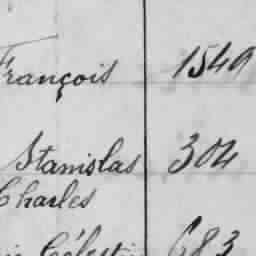 François 1549
Stanislas 304
Charles
Célestin 683